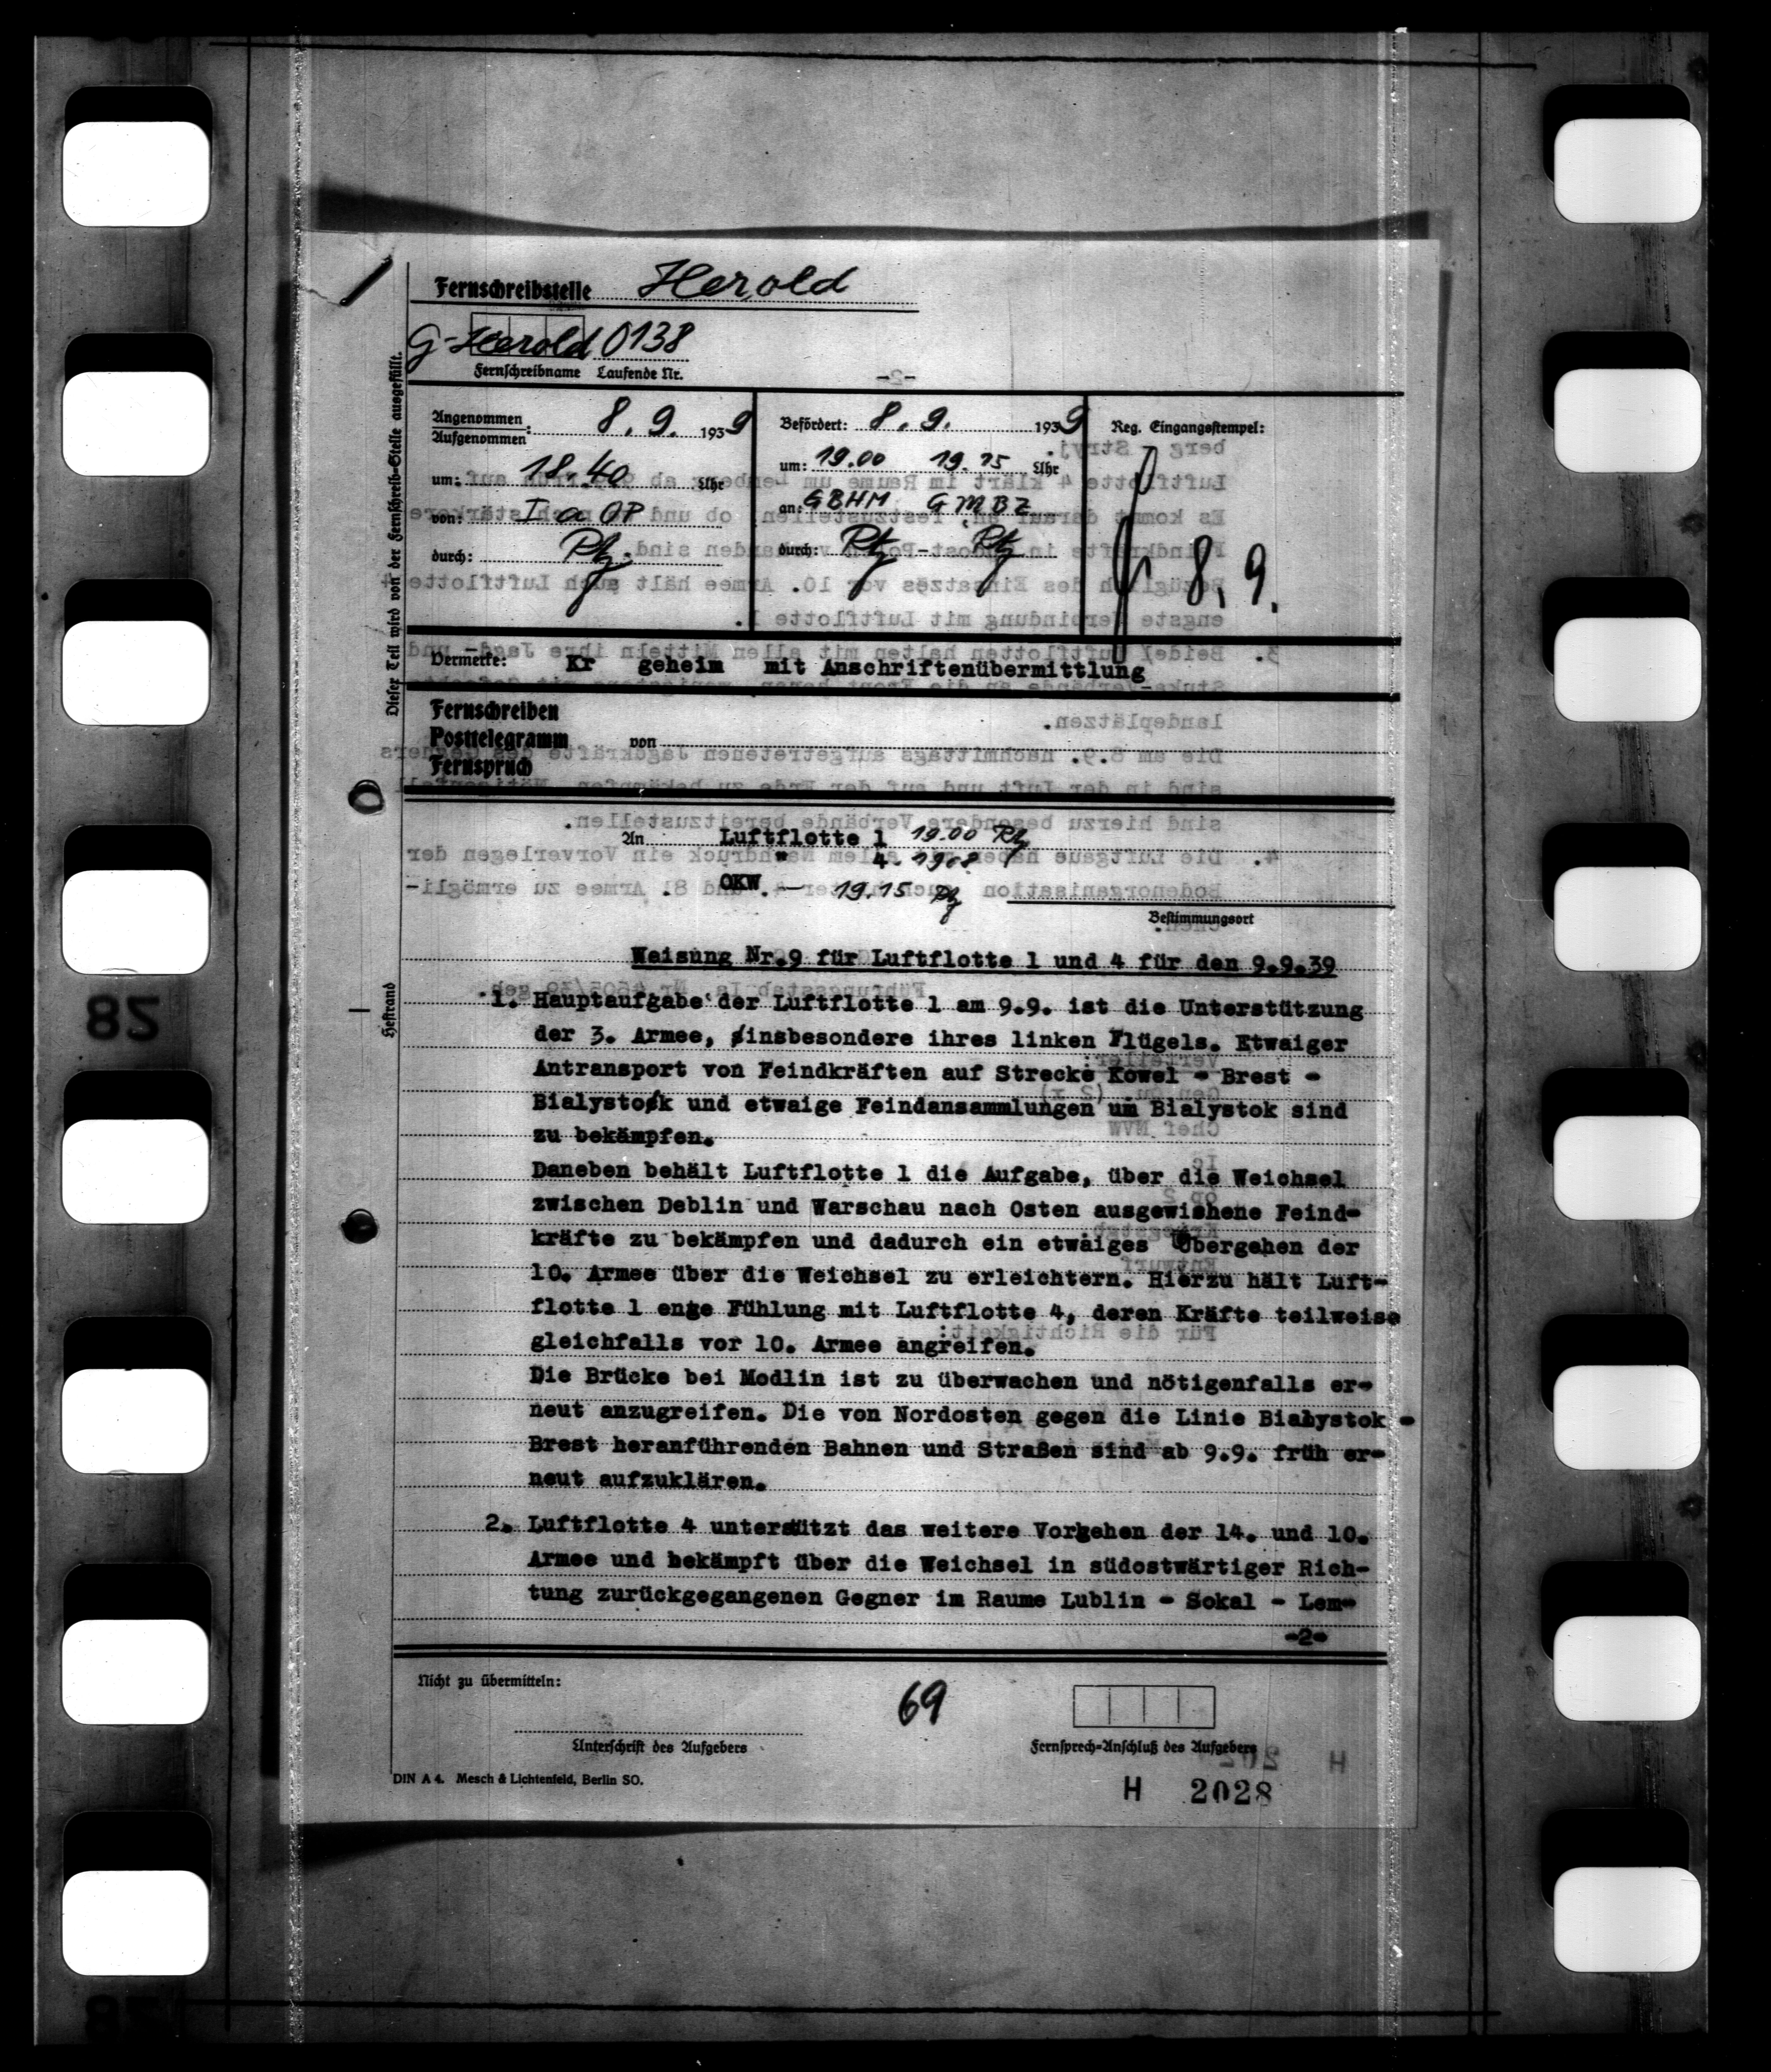 Fernschreibstelle Herold
G-Herold 0138
Fernschreibname Laufende Nr.
Dieser Teil wird von der Fernschreib-Stelle ausgefüllt.
Angenommen
Aufgenommen: 8.9. 1939
um: 18.40 Uhr
von: I a OP
durch:
Befördert: 8.9. 1939
um: 19.00 19.15 Uhr
an: GBHM GMBZ
durch:
Reg. Eingangsstempel:
8.9.
Vermerke: Kr geheim mit Anschriftenübermittlung
Fernschreiben
Posttelegramm von
Fernspruch
An Luftflotte 1 19.00
" 4
OKW. — 19.15
Bestimmungsort
Heftrand
Weisung Nr.9 für Luftflotte 1 und 4 für den 9.9.39
1. Hauptaufgabe der Luftflotte 1 am 9.9. ist die Unterstützung
der 3. Armee, insbesondere ihres linken Flügels. Etwaiger
Antransport von Feindkräften auf Strecke Kowel - Brest -
Bialystok und etwaige Feindansammlungen um Bialystok sind
zu bekämpfen.
Daneben behält Luftflotte 1 die Aufgabe, über die Weichsel
zwischen Deblin und Warschau nach Osten ausgewichene Feind-
kräfte zu bekämpfen und dadurch ein etwaiges Übergehen der
10. Armee über die Weichsel zu erleichtern. Hierzu hält Luft-
flotte 1 enge Fühlung mit Luftflotte 4, deren Kräfte teilweise
gleichfalls vor 10. Armee angreifen.
Die Brücke bei Modlin ist zu überwachen und nötigenfalls er-
neut anzugreifen. Die von Nordosten gegen die Linie Bialystok -
Brest heranführenden Bahnen und Straßen sind ab 9.9. früh er-
neut aufzuklären.
2. Luftflotte 4 unterstützt das weitere Vorgehen der 14. und 10.
Armee und bekämpft über die Weichsel in südostwärtiger Rich-
tung zurückgegangenen Gegner im Raume Lublin - Sokal - Lem-
-2-
Nicht zu übermitteln:
69
Unterschrift des Aufgebers
Fernsprech-Anschluß des Aufgebers
DIN A 4. Mesch & Lichtenfeld, Berlin SO.
H 2028
82